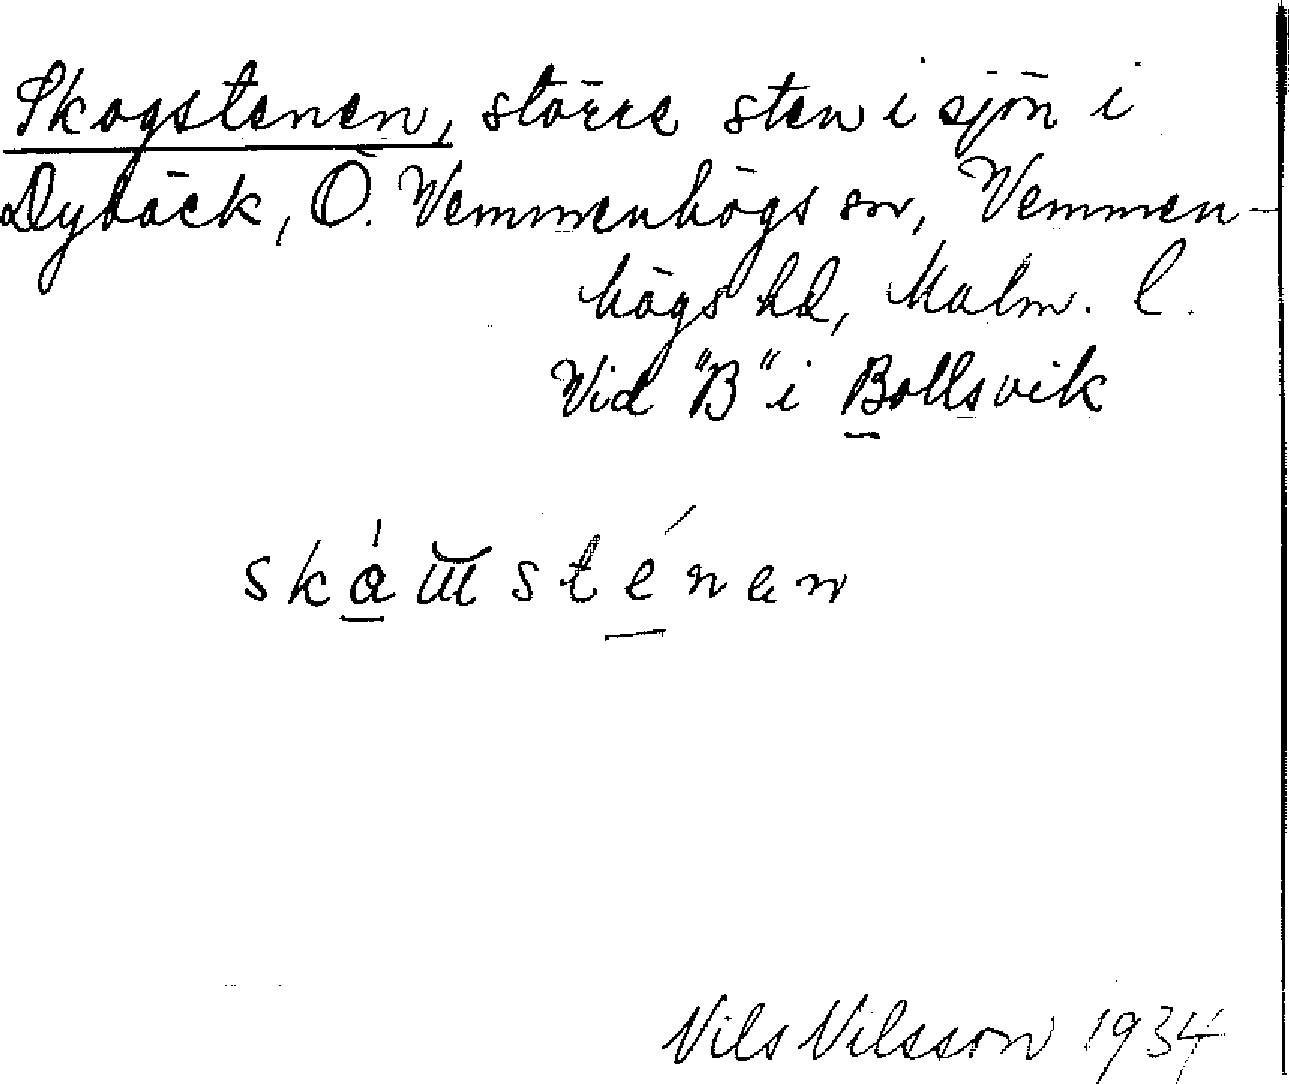 Skogstenen, större sten i sjön i
Dybäck, Ö. Vemmenhögs sn, Vemmen-
högs hd, Malm. l.
Vid "B" i Bollsvik
sténen
Nils Nilsson 1934